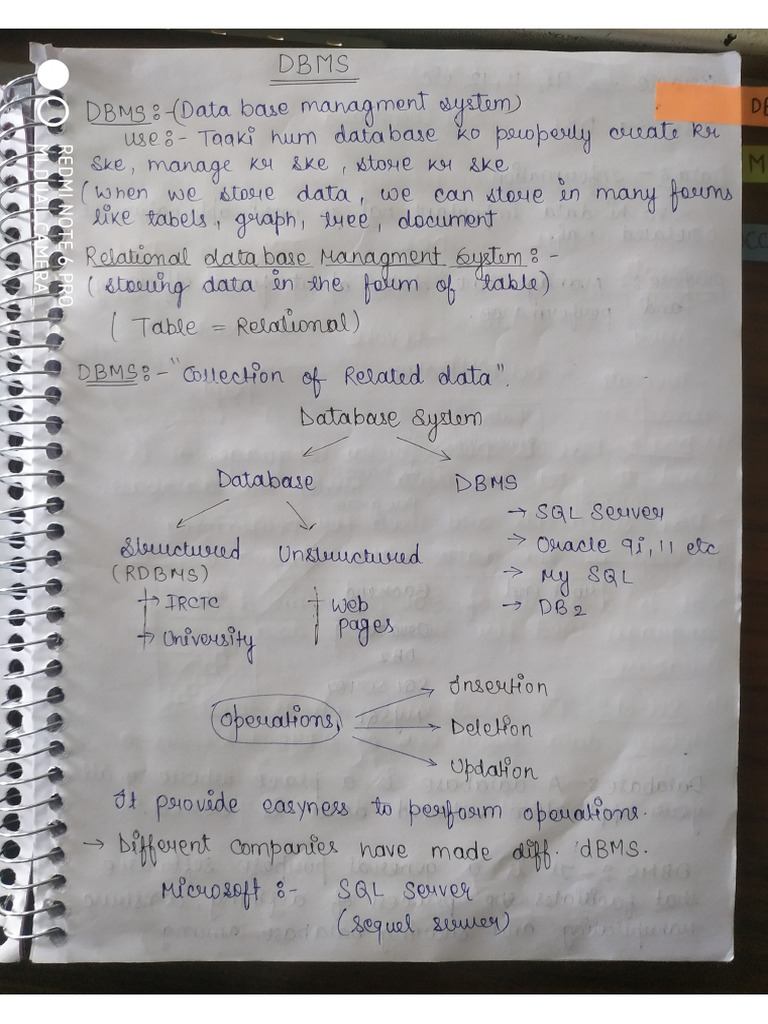 DBMS
DBMS:-(Data base managment system)
use:- Taaki hum database ko properly create kr
ske, manage kr ske, store kr ske
(when we store data, we can store in many forms
like tabels, graph, tree, document
Relational database Managment System:-
(storing data in the form of table)
(Table = Relational)
DBMS:- "Collection of Related data".
Database System
Database DBMS
→ SQL Server
Structured Unstructured → Oracle 9i, 11 etc
(RDBMS) → My SQL
→ IRCTC Web → DB2
→ University pages
Insertion
Operations Deletion
Updation
It provide easyness to perform operations.
→ Different companies have made diff. 'dBMS.
Microsoft:- SQL Server
(sequel server)
REDMI NOTE 6 PRO
MI DUAL CAMERA